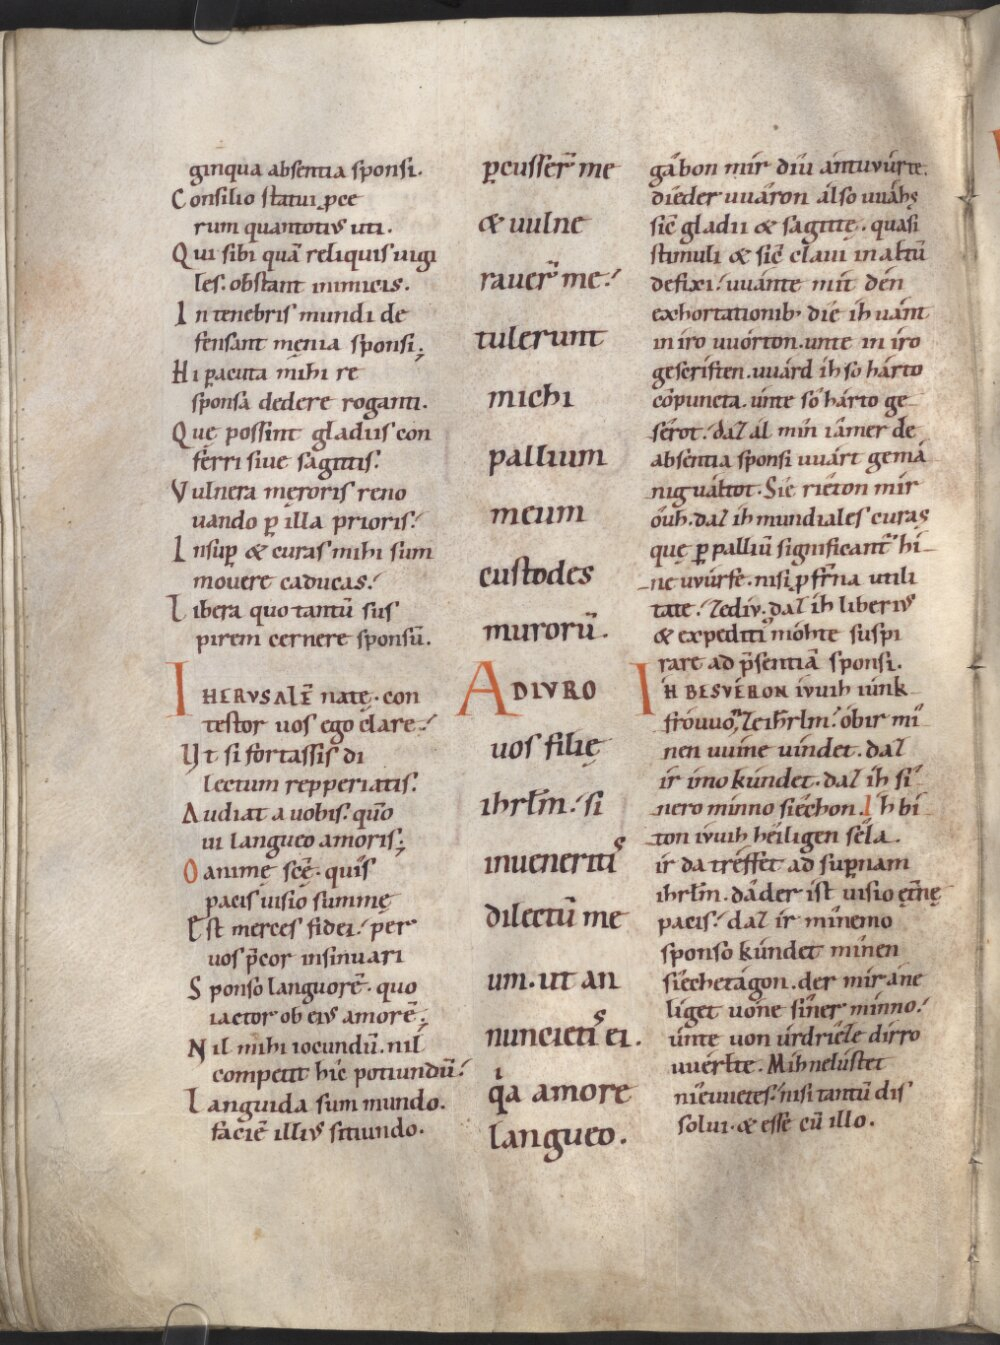 ginqua absentia sponsi.
Consilio statui p̱ce
rum quantotiuſ uti.
Qui sibi quā reliquis uigi
les. obstant inimicis.
In tenebris mundi de
fensant męnia sponsi;
Hi pacuta mihi re
sponsa dedere roganti.
Que possint gladiis con
ferri siue sagittis.
Vulnera męroris reno
uando ꝑ illa prioris.
Insuꝑ & curas mihi sum
mouere caducas.
Libera quo tantū sus
pirem cernere sponsū.
IHERVSALĒ natę. con
testor uos ego clare.
Ut si fortassis di
lectum repperiatis.
Audiat a uobis. quō
ui langueo amoris;
O animę scę̄. quis
pacis uisio summę
Est merces fidei. per
uos p̄cor insinuari
Sponso languorē. quo
iactor ob eiꝰ amorē;
Nil mihi iocundū. nil
competit hic potiundū.
Languida sum mundo.
faciē illiꝰ sitiundo.
ꝑcusser̄ me
& uulne
rauer̄ me.
tulerunt
michi
pallium
meum
custodes
murorū.
ADIVRO
uos filię
ihrlm̄. si
inueneritis
dilectū me
um. ut an
nuncietis ei.
qia amore
langueo.
gâbon mir diu ántuvúrte.
dieder uuâron álso uuahs
sic̄ gladii & sagittę. quasi
stimuli & sic̄ claui in altū
defixi. uuánte mit dén
exhortationibꝰ die ih uant
in íro uuórton. unte in íro
gescriften. uuárd ih so hárto
cōpuncta. únte so hárto ge
sérot. daz ál min iâmer de
absentia sponsi uuárt gemá
nigualtot. Sie riêton mir
óuh. daz ih mundiales curas
quę ꝑ palliū significant̄ hi
ne uvúrfe. nisi ꝓ fr̄na utili
tate. zediv. daz ih liberiꝰ
& expeditiꝰ móhte suspi
rare ad p̄sentiā sponsi.
IH BESVÉRON ivuih iúnk
fróuuon, ze ihrlm̄. óbir mî
nen uuine uindet. daz
ir imo kúndet. daz ih sî
nero minno siêchon. Ih bi
ton ivuih héiligen sêla
ir da tréffet ad suꝑnam
ihrlm̄. dâder ist uisio ęt̄nę
pacis. daz ir mînemo
sponso kúndet mînen
siêchetágon. der mir áne
liget uóne sîner minno.
únte uon úrdriêłe dirro
uuerłte. Mih nelústet
niêuuetes. nisi tantū dis
solui. & esse cū illo.